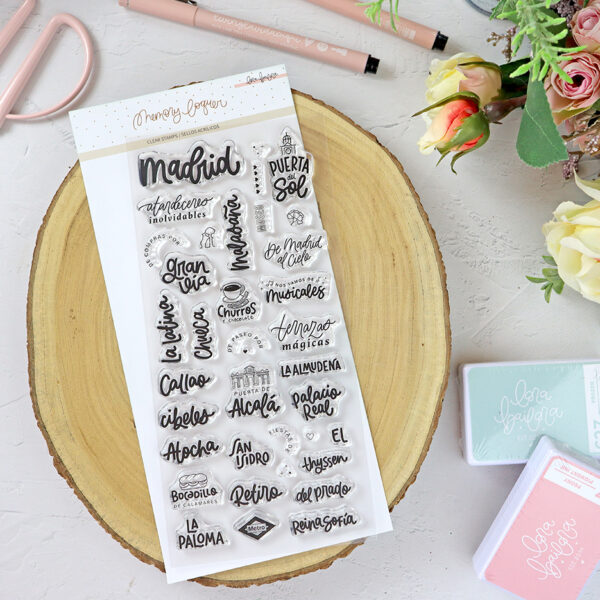 lora bailora
Memory loquer
CLEAR STAMPS / SELLOS ACRÍLICOS
Madrid
PUERTA
del
SOL
atardeceres
inolvidables
malasaña
DE COMPRAS POR
gran
vía
De Madrid
al Cielo
NOS VAMOS DE
Musicales
CHURROS
Y CHOCOLATE
La Latina
Chueca
DE PASEO POR
terrazas
mágicas
Callao
PUERTA DE
Alcalá
LA ALMUDENA
Palacio
Real
cibeles
Atocha
SAN
ISIDRO
FIESTAS
EL
thyssen
BOCADILLO
DE CALAMARES
Retiro
del prado
LA
PALOMA
Metro
Reina Sofía
lora
bailora
637
lora
bailora